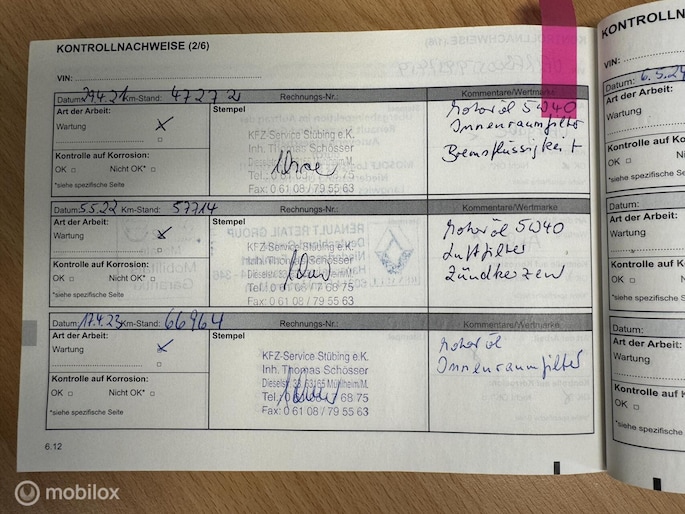 KONTROLLNACHWEISE (2/6)
VIN:
Datum: 29.4.21 Km-Stand: 47272 Rechnungs-Nr.: Kommentare/Wertmarke
Art der Arbeit: Stempel Motoröl 5W40
Wartung x KFZ-Service Stübing e.K. Innenraumfilter
Inh. Thomas Schösser Bremsflüssigkeit
Kontrolle auf Korrosion:
OK Nicht OK*
Tel.: 0 61 08 / 79 55 62
*siehe spezifische Seite Fax: 0 61 08 / 79 55 63
Datum: 5.5.22 Km-Stand: 57714 Rechnungs-Nr.: Kommentare/Wertmarke
Art der Arbeit: Stempel Motoröl 5W40
Wartung KFZ-Service Stübing e.K. Luftfilter
Inh. Thomas Schösser Zündkerzen
Kontrolle auf Korrosion:
OK Nicht OK*
*siehe spezifische Seite Fax: 0 61 08 / 79 55 63
Datum: 17.4.23 Km-Stand: 66964 Rechnungs-Nr.: Kommentare/Wertmarke
Art der Arbeit: Stempel Motoröl
Wartung x KFZ-Service Stübing e.K. Innenraumfilter
Inh. Thomas Schösser
Dieselstr. 33, 63165 Mühlheim/M.
Kontrolle auf Korrosion: 68 75
OK Nicht OK* Fax: 0 61 08 / 79 55 63
*siehe spezifische Seite
6.12
KONTROLLN
VIN:
Datum: 6.5.24
Art der Arbeit:
Wartung
Kontrolle auf
OK
*siehe spezifische
Datum:
Art der Arbeit:
Wartung
Kontrolle
OK
*siehe spezifische
Datum:
Art der
Wartung
OK
*siehe
mobilox